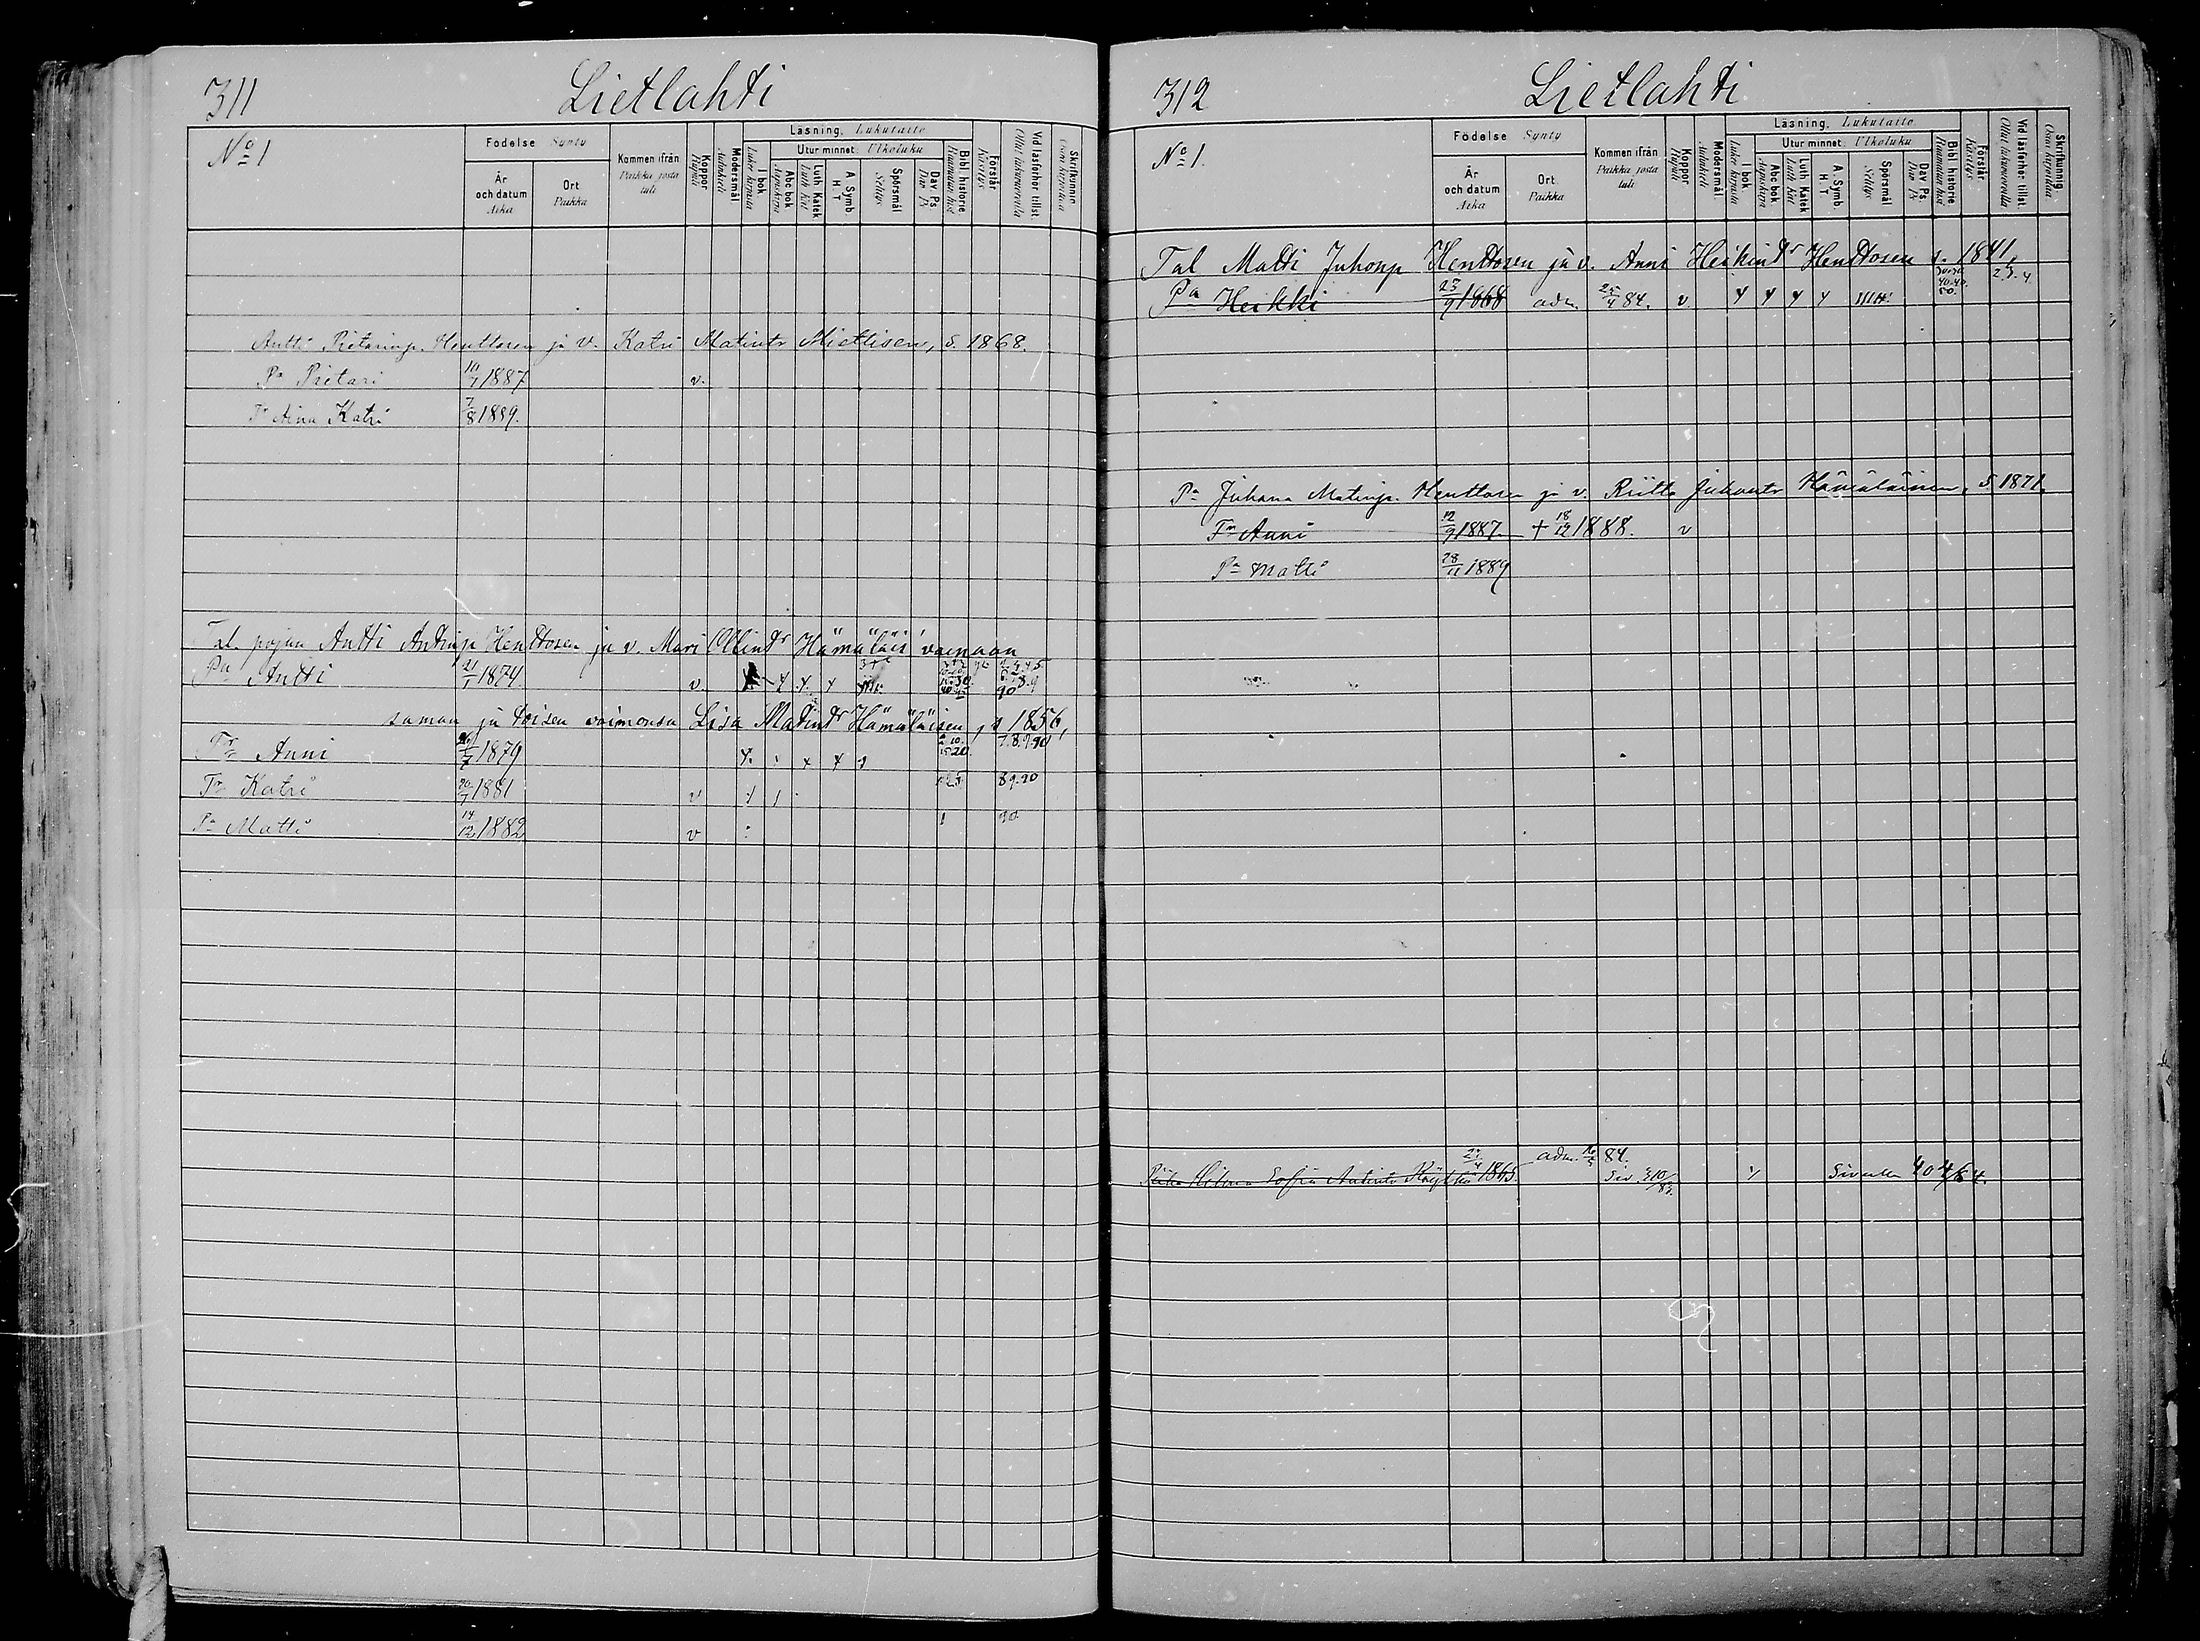 311 Lietlahti
No 1
Födelse Synty
År och datum Aika
Ort Paikka
Kommen ifrån Paikka josta tuli
Koppor Rupuli
Modersmål Äidinkieli
Läsning. Lukutaito
I bok Lukee kirjasta
Utur minnet: Ulkoluku
Abc bok Aapiskirja
Luth Katek Luth Kat
A. Symb. H. T.
Spörsmål Selitys
Dav. Ps. Dav Ps
Bibl. historie Raamatun hist
Förstår Käsitys
Vid läsförhör tillst. Ollut lukuvuorolla
Skrifkunnig. Osaa kirjoittaa
Antti Pietarinp. Henttosen ja v. Katri Matintr Miettisen, s. 1868.
Pa Pietari 10/7 1887 v.
Tr Aina Katri 7/8 1889.
Tal. pojan Antti Antinp Henttosen ja v. Mari Ollintr Hämäläis' vainaan
Pa Antti 21/1 1874 v. 90
saman ja toisen vaimonsa Lisa Matintr Hämäläisen, s 1856,
Tr Anni 1879 7.8.9.90
Tr Katri 1881 v 89.90
Pa Matti 14/12 1882 v 90
312 Lietlahti
No 1.
Födelse Synty
År och datum Aika
Ort. Paikka
Kommen ifrån Paikka josta tuli
Koppor Rupuli
Modersmål. Äidinkieli
Läsning. Lukutaito
I bok Lukee kirjasta
Utur minnet: Ulkoluku
Abc bok Aapiskirja
Luth Katek Luth Kat
A. Symb. H. T.
Spörsmål Selitys
Dav. Ps. Dav Ps
Bibl. historie Raamatun hist
Förstår Käsitys
Vid läsförhör tillst. Ollut lukuvuorolla
Skrifkunnig. Osaa kirjoittaa
Tal Matti Juhonp Henttosen ja v. Anni Heikintr Henttosen s. 1841,
Pa Heikki 23/9 1868 adm. 25/4 84. v 2 3. 4
Pa Juhana Matinp. Henttosen ja v. Riitta Juhontr Hämäläinen, s 1871.
Tr Anni 12/9 1887. + 18/12 1888. v
Pa Matti 28/11 1889
adm. 16/5 84.
Piika Hilma Sofia Antintr 1865. Siv 310/83. Sivulla 404/84.